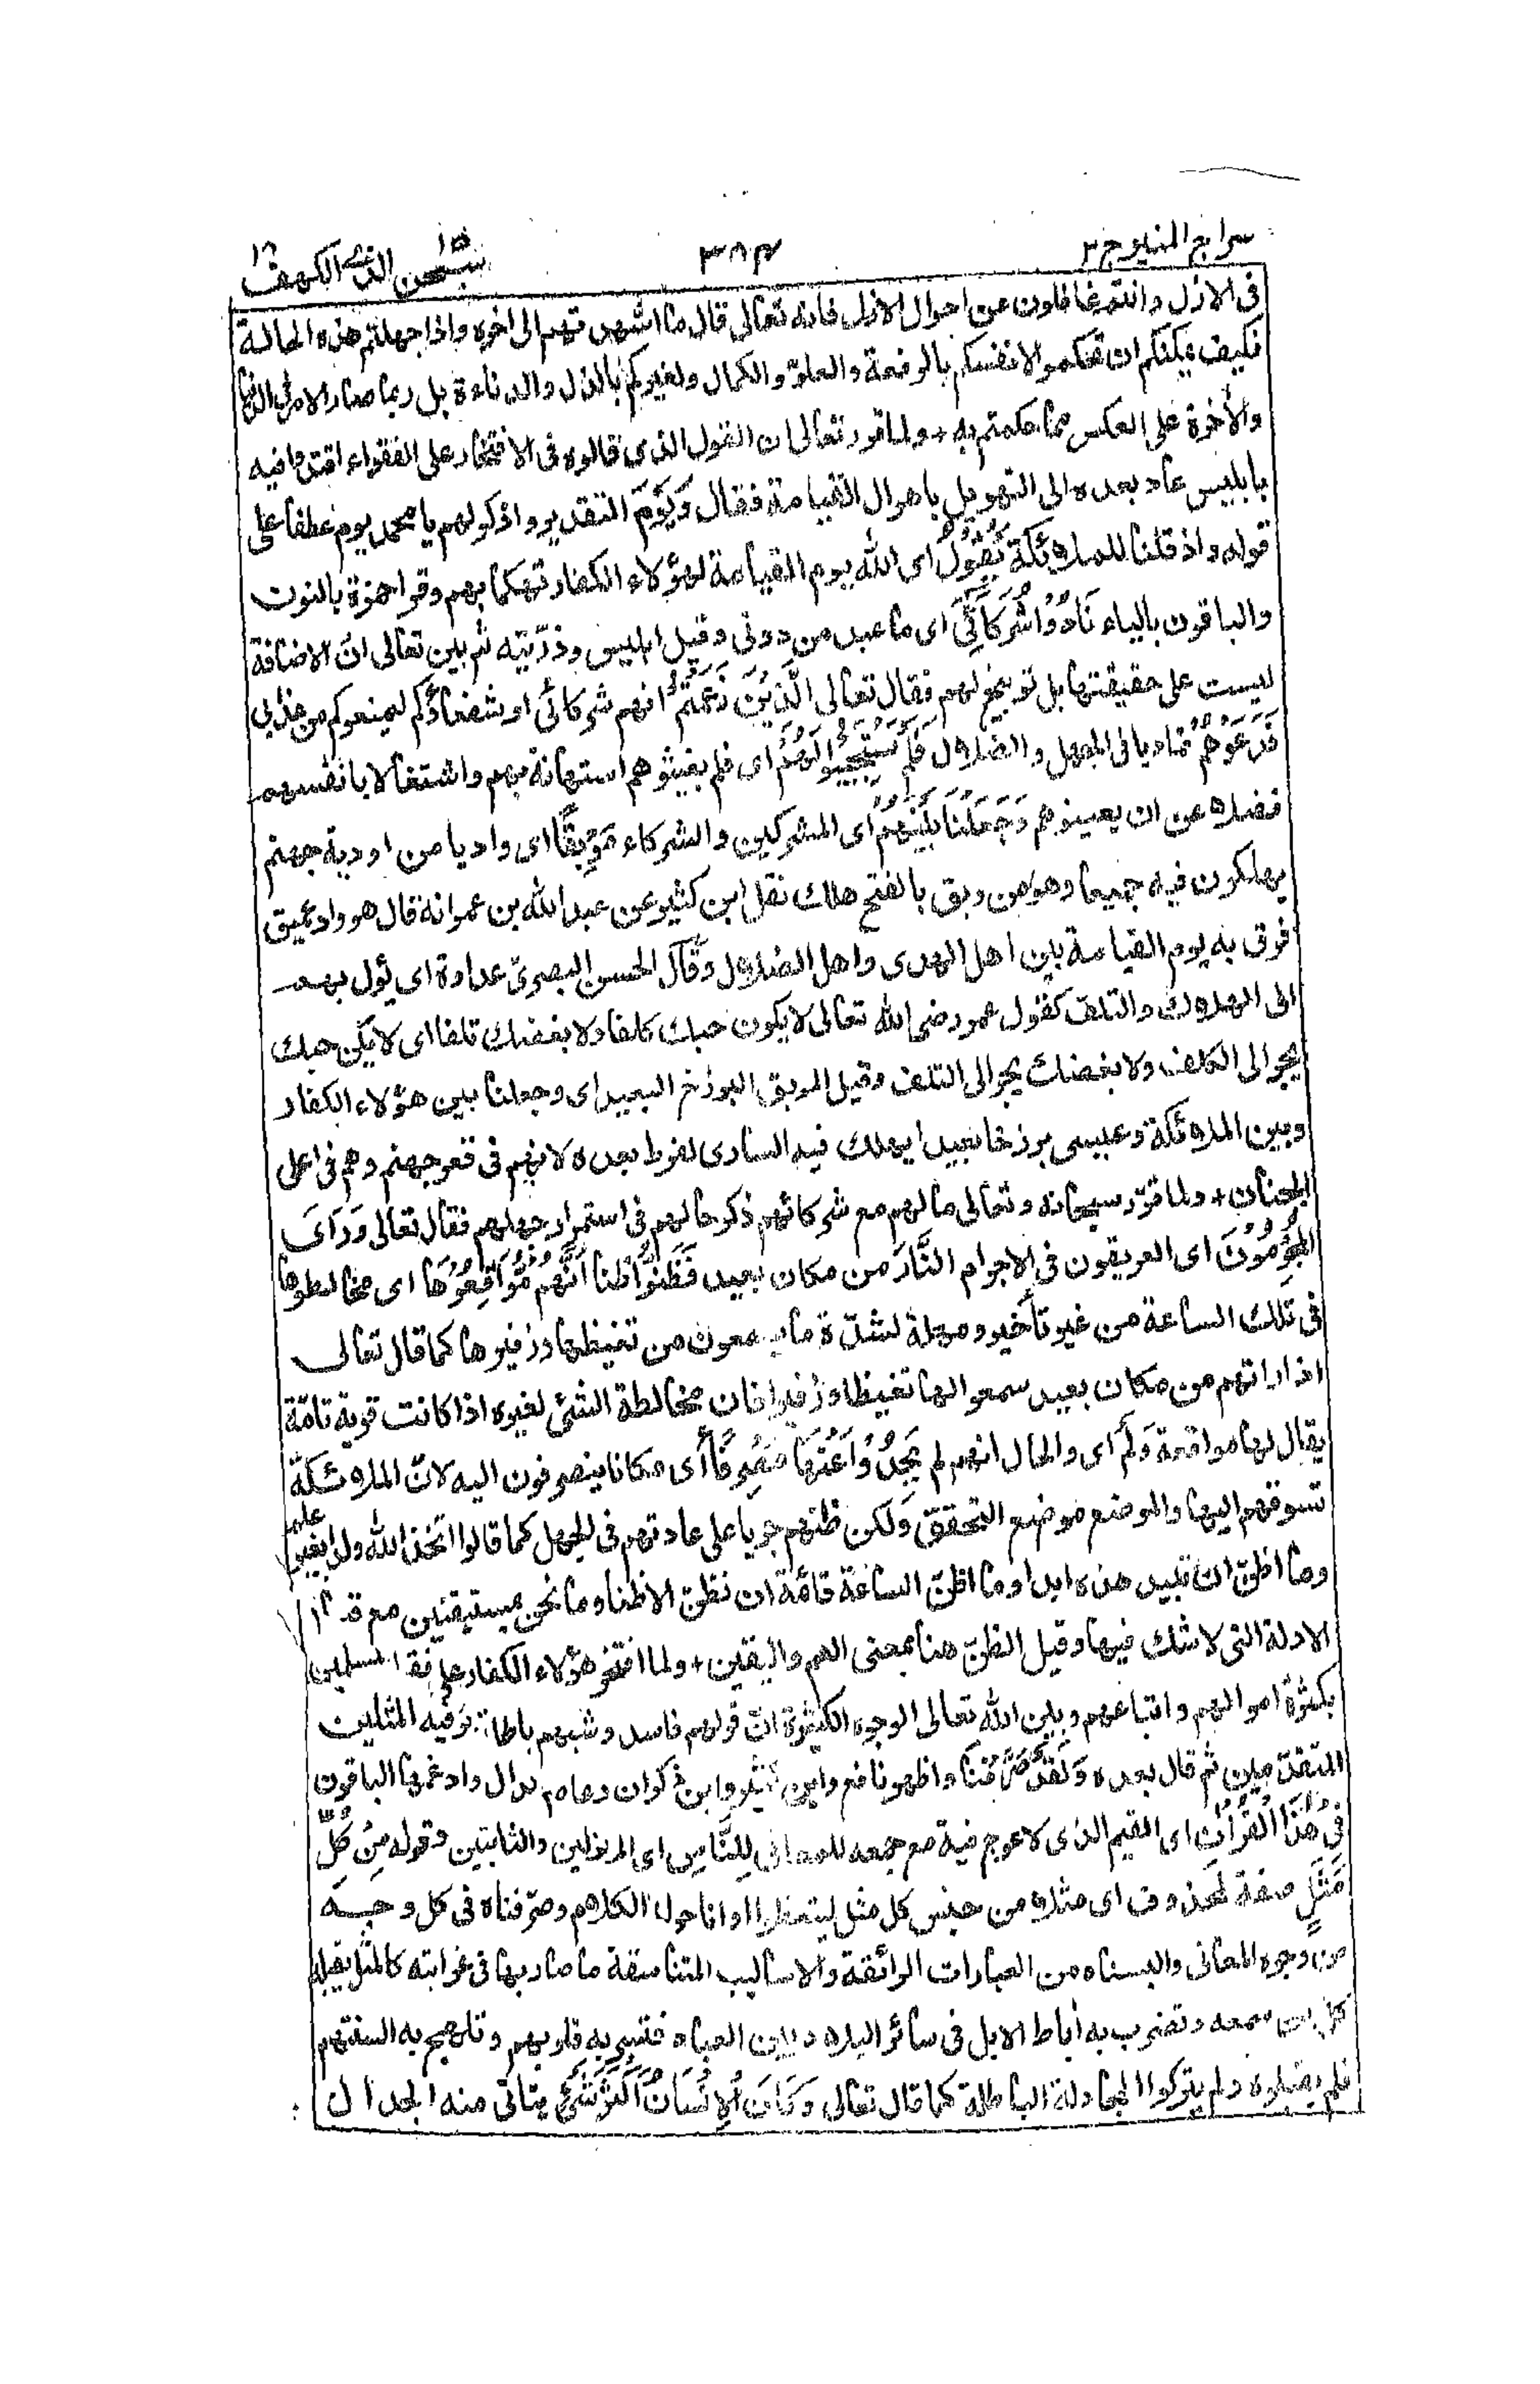 سراج المنير ج٢
٣٨٤
سبحن الذى ١٥ الكهف ١٨
فى الازل وانتم غافلون عن احوال الازل فانه تعالى قال ما اشهدتهم الى اخره واذا جهلتم هذه الحالة
فكيف يمكنكم ان تحكموا لانفسكم بالرفعة والعلوّ والكمال ولغيركم بالذل والدناءة بل ربما صار الامر فى الدنيا
والآخرة على العكس مما حكمتم به + ولما قرر تعالى ان القول الذى قالوه فى الافتخار على الفقراء اقتدوا فيه
بابليس عاد بعده الى التهويل باهوال القيامة فقال وَيَوْمَ التقدير واذكر لهم يا محمد يوم عطفا على
قوله واذ قلنا للملائكة يَقُوْلُ اى الله يوم القيامة لهؤلاء الكفار تهكما بهم وقرا حمزة بالنون
والباقون بالياء نَادُوْا شُرَكَآئِىَ اى ما عبد من دونى وقيل ابليس وذرّيته ثم بين تعالى انّ الاضافة
ليست على حقيقتها بل توبيخ لهم فقال تعالى الَّذِيْنَ زَعَمْتُمْ انهم شركائى او شفعاؤكم ليمنعوكم من عذابى
فَدَعَوْهُمْ تماديا فى الجهل والضلال فَلَمْ يَسْتَجِيْبُوْا لَهُمْ اى فلم يغيثوهم استهانة بهم واشتغالا بانفسهم
فضلا عن ان يعينوهم وَجَعَلْنَا بَيْنَهُمْ اى المشركين والشركاء مَوْبِقًا اى واديا من اودية جهنم
يهلكون فيه جميعا وهو من وبق بالفتح هلك نقل ابن كثير عن عبد الله بن عمر انه قال هو واد عميق
فرق به يوم القيامة بين اهل الهدى واهل الضلال وقال الحسن البصرىّ عداوة اى يئول بهم
الى الهلاك والتلف كقول عمر رضى الله تعالى لا يكون حبك كلفا ولا بغضك تلفا اى لا يكن حبك
يجر الى الكلف ولا بغضك يجر الى التلف وقيل الموبق البرزخ البعيد اى وجعلنا بين هؤلاء الكفار
وبين الملائكة وعيسى برزخا بعيدا يهلك فيه السارى لفرط بعده لانهم فى قعر جهنم وهم فى اعلى
الجنان + ولما قرّر سبحانه وتعالى ما لهم مع شركائهم ذكر حالهم فى استمرار جهلهم فقال تعالى وَرَاَى
الْمُجْرِمُوْنَ اى العريقون فى الاجرام النَّارَ من مكان بعيد فَظَنُّوْا ظنا اَنَّهُمْ مُّوَاقِعُوْهَا اى مخالطوها
فى تلك الساعة من غير تأخير ومهلة لشدّة ما يسمعون من تغيظها وزفيرها كما قال تعالى
اذا راتهم من مكان بعيد سمعوا لها تغيظا وزفيرا فان مخالطة الشئ لغيره اذا كانت قوية تامّة
يقال لها مواقعة وَلَمْ اى والحال انهم لم يَجِدُوْا عَنْهَا مَصْرِفًا اى مكانا ينصرفون اليه لانّ الملائكة
تسوقهم اليها والموضع موضع التحقق ولكن ظنهم جريا على عادتهم فى الجهل كما قالوا اتخذ الله ولدا بغير علم
وما اظنّ ان تبيد هذه ابدا وما اظنّ الساعة قائمة ان نظنّ الا ظنا وما نحن بمستيقنين مع قد
الادلة التى لا شك فيها وقيل الظنّ هنا بمعنى الهم واليقين + ولما افتخر هؤلاء الكفار على فقراء المسلمين
بكثرة اموالهم واتباعهم وبين الله تعالى الوجوه الكثيرة انّ قولهم فاسد وشبههم باطلة وفيه المثلين
المتقدّمين ثم قال بعده وَلَقَدْ صَرَّفْنَا واظهر نافع وابن كثير وابن ذكوان وعاصم بدال وادغمها الباقون
فِىْ هٰذَا الْقُرْاٰنِ اى القيم الذى لا عوج فيه مع جمعه للمعانى لِلنَّاسِ اى المزلزلين والثابتين وقوله مِنْ كُلِّ
مَثَلٍ صفة لمحذوف اى مثلا من جنس كل مثل ليتعظوا او اناحول الكلام وصرّفناه فى كل وجه
من وجوه المعانى والبسناه من العبارات الرائقة والاساليب المتناسقة ما صار بها فى غرابته كالمثل يقبله
كل من سمعه وتضرب به اٰباط الابل فى سائر البلاد وبين العباد فتسر به قلوبهم وتلهج به السنتهم
فلم يقبلوه ولم يتركوا المجادلة الباطلة كما قال تعالى وَكَانَ الْاِنْسَانُ اَكْثَرَ شَىْءٍ يتاتى منه الجدال